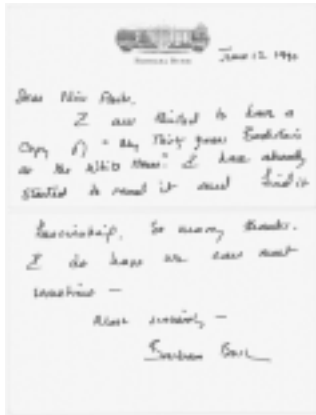 June 12 1990
Dear Miss Parks,
I am thrilled to have a
Copy of "My Thirty Years Backstairs
at the White House." I have already
started to read it and find it
fascinating. So many thanks.
I do hope we can meet
sometime —
Most sincerely —
Barbara Bush